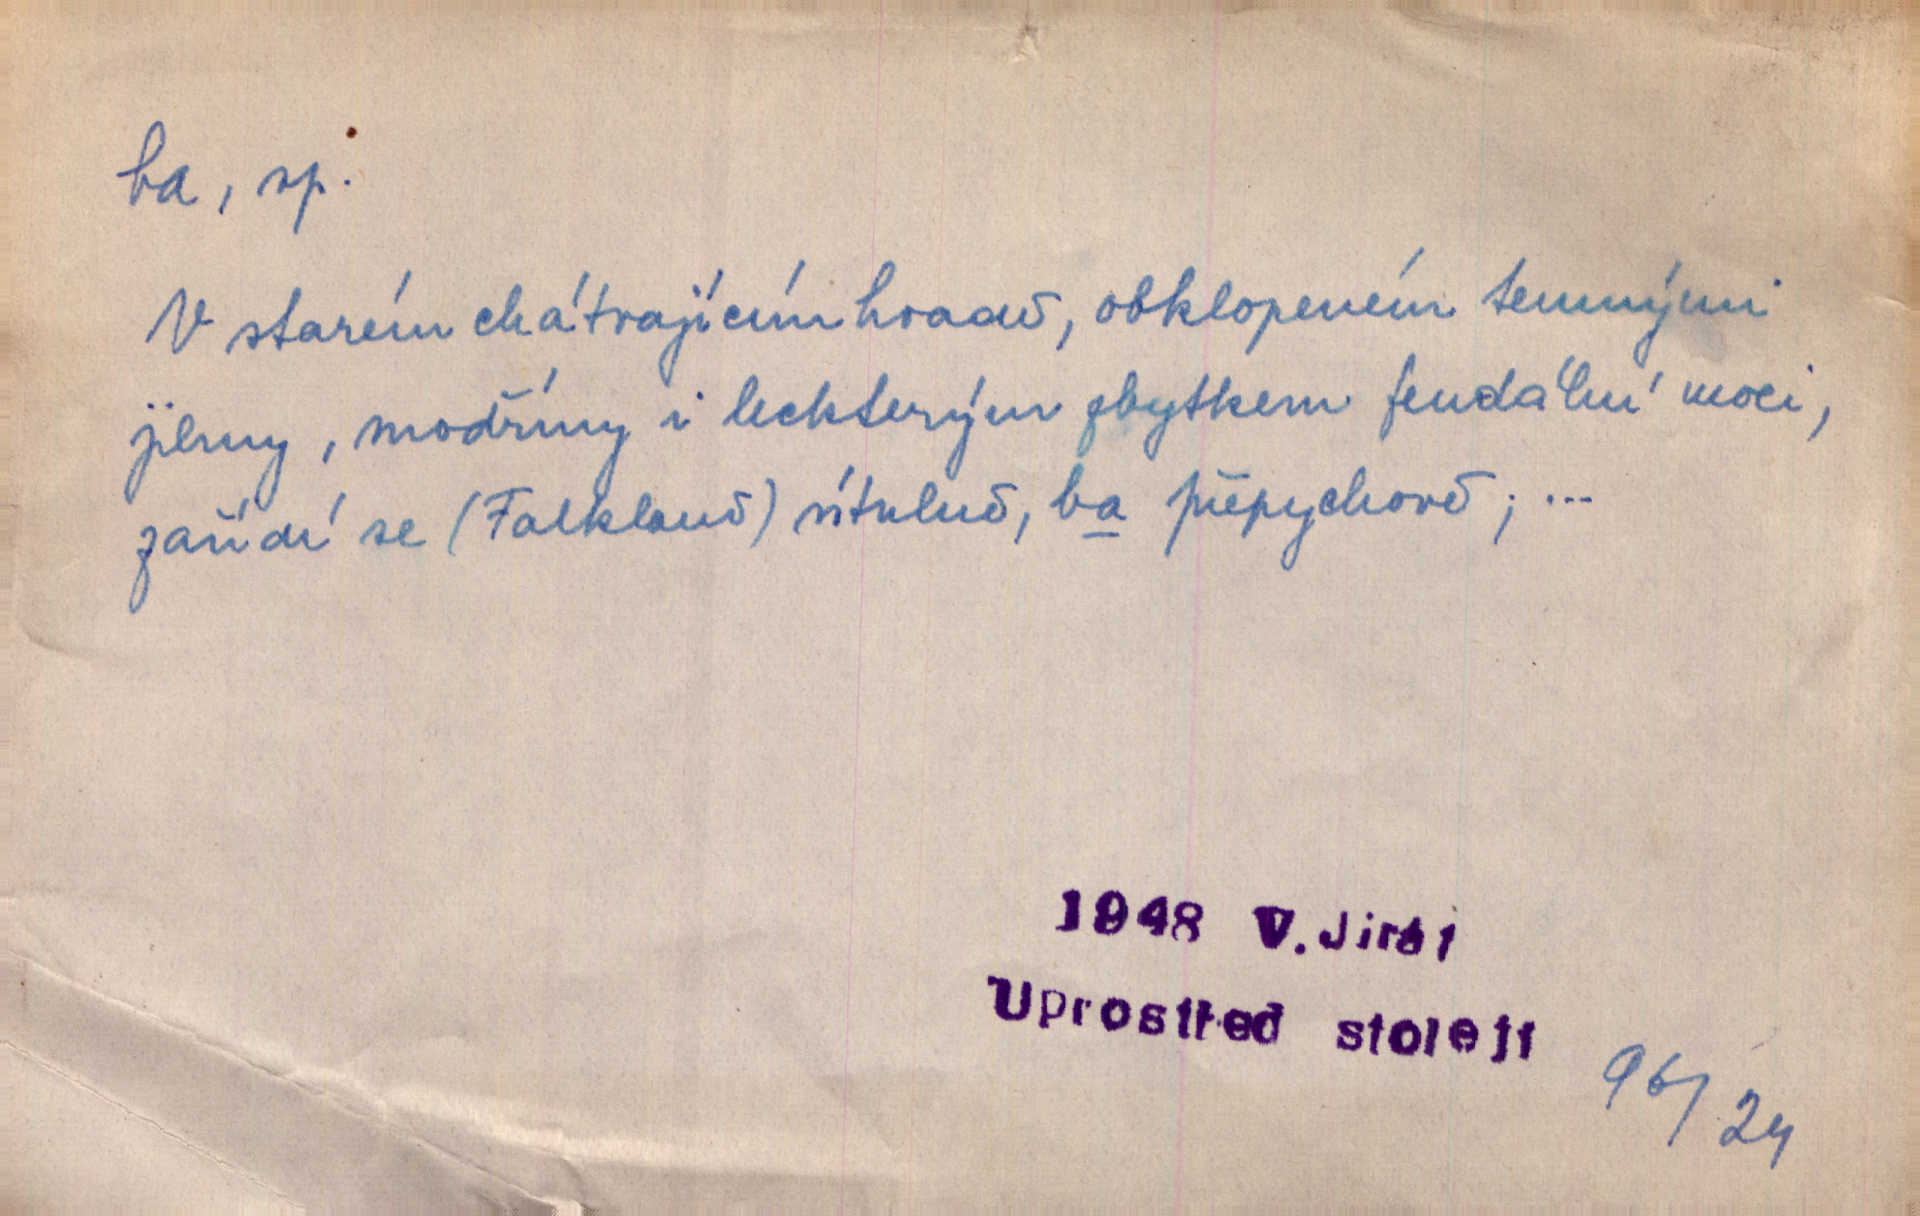 ba, sp.
V starém chátrajícím hradě, obklopeném temnými
jilmy, modříny i leckterým zbytkem feudální moci,
zařídí se (Falkland) útulně, ba přepychově; ...
1948 V. Jirát
Uprostřed století
96/24